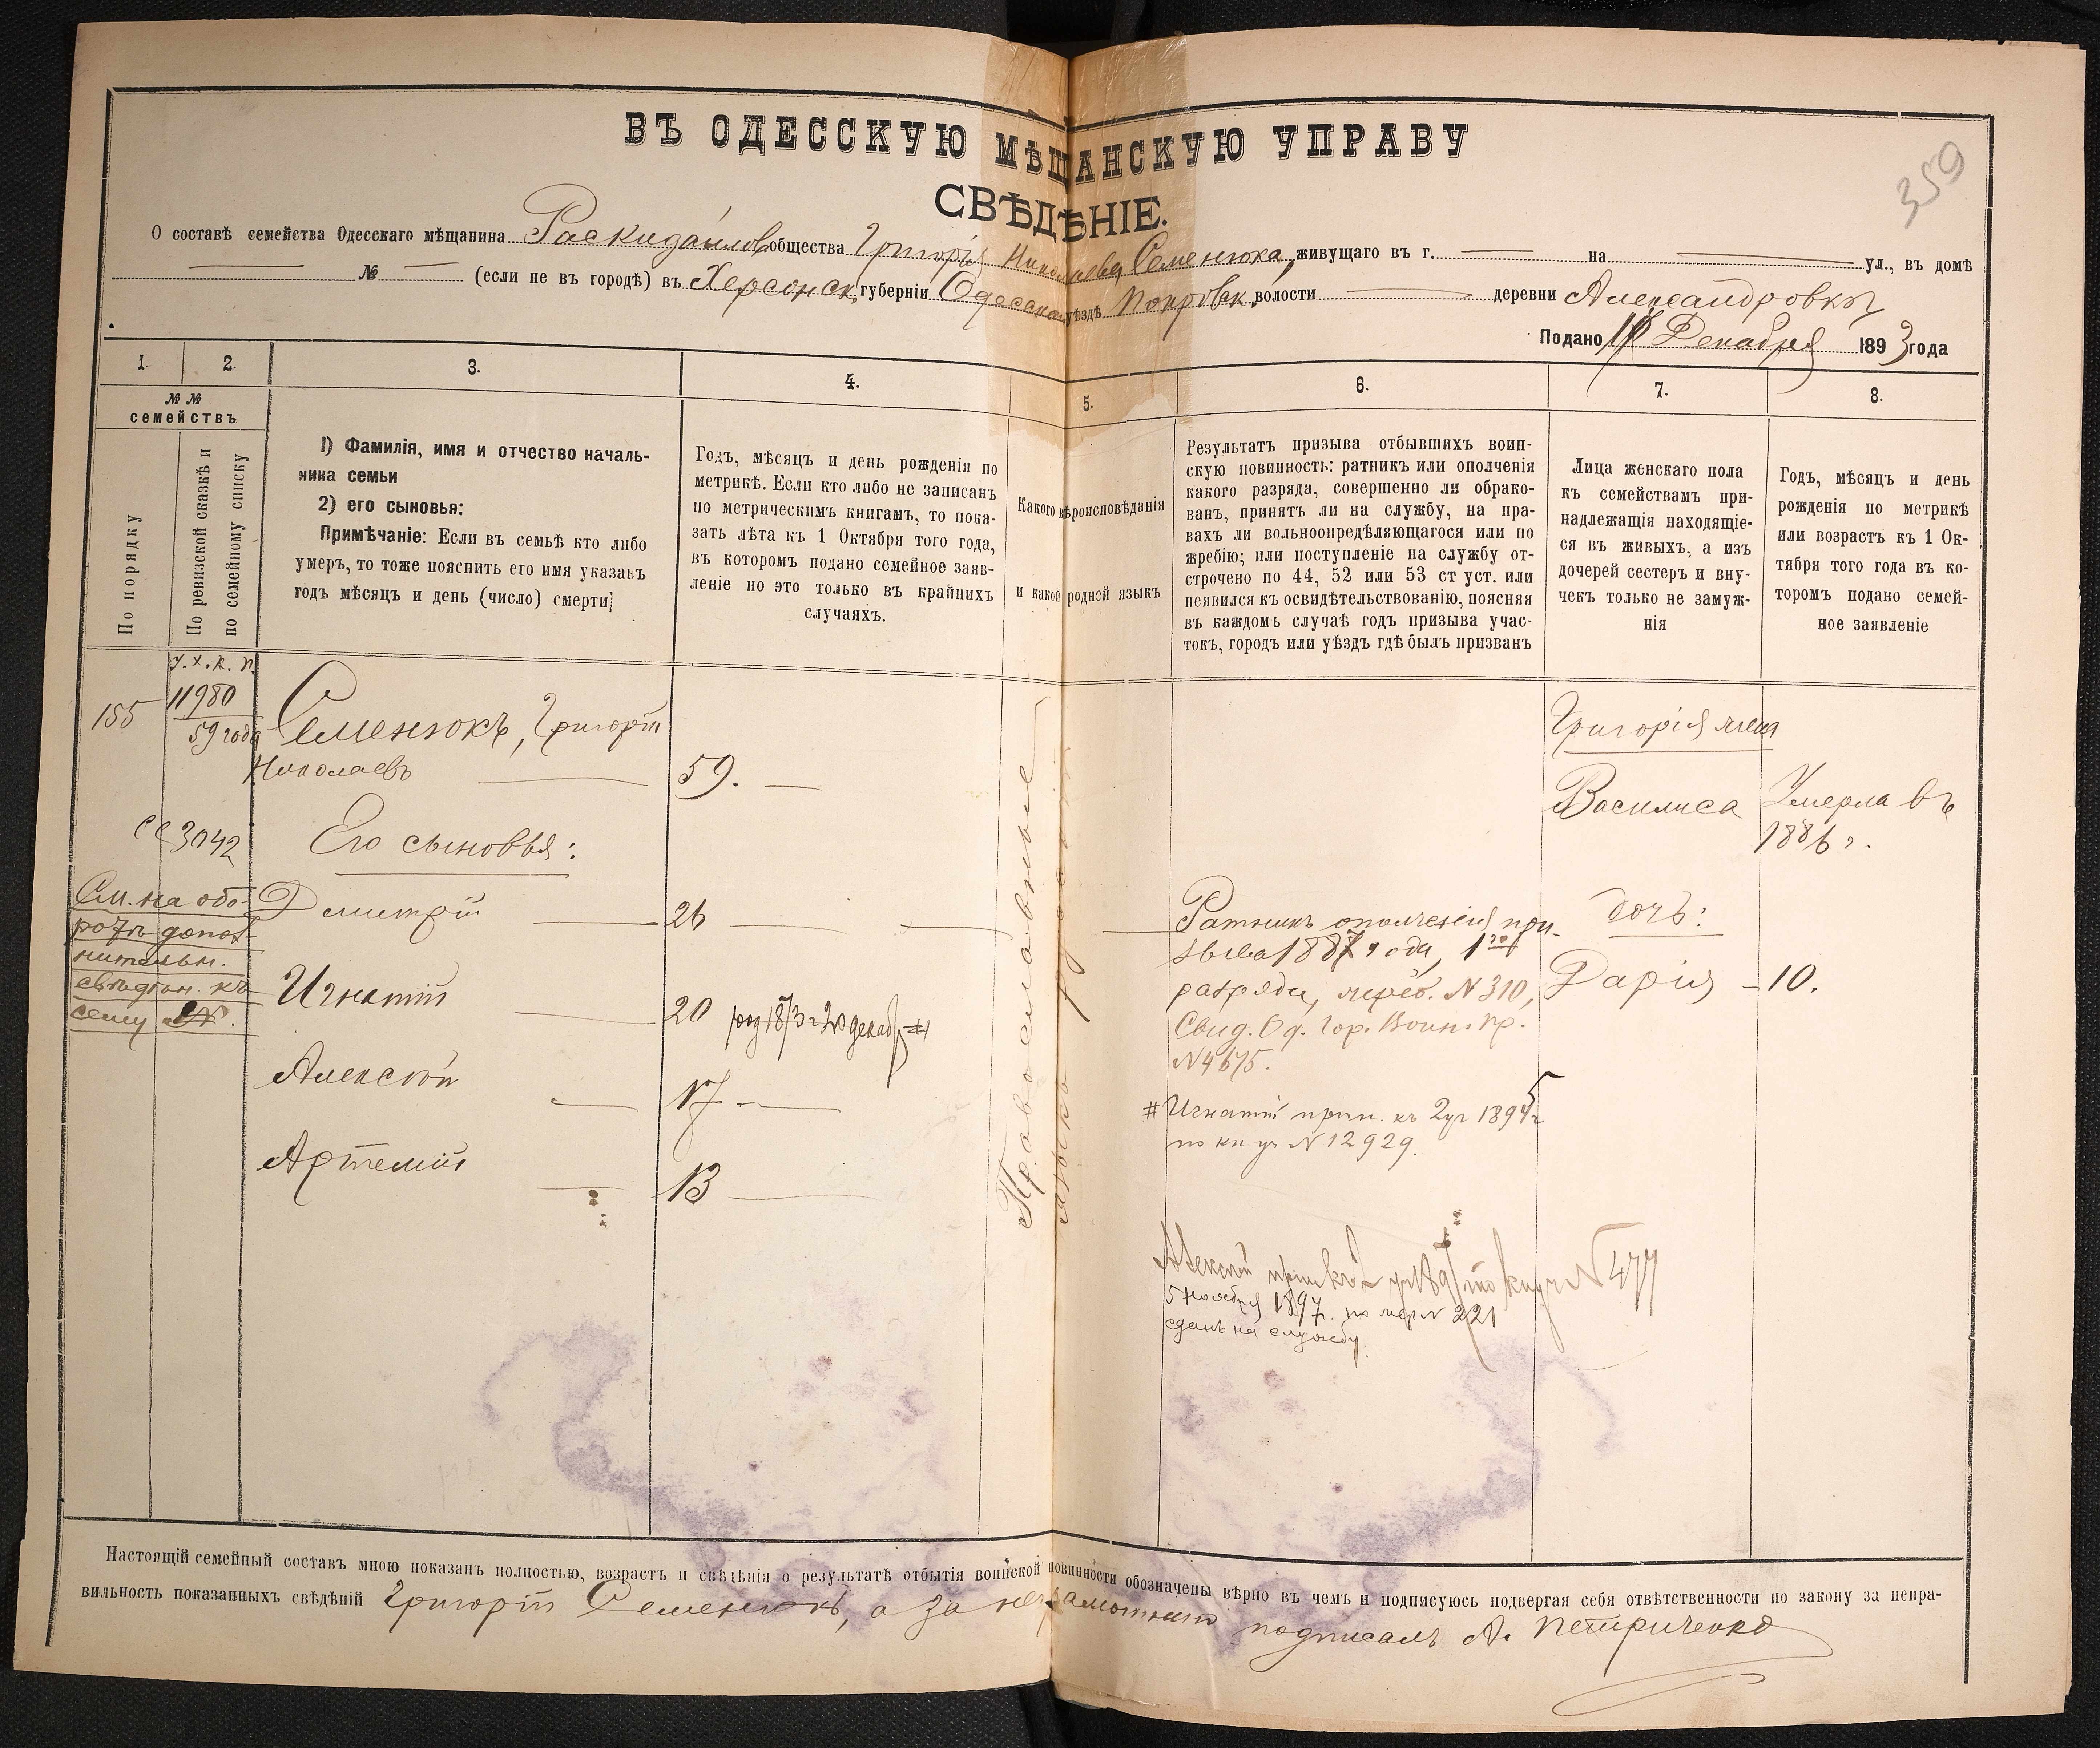 ВЪ ОДЕССКУЮ МѢЩАНСКУЮ УПРАВУ
359
СВѢДѢНІЕ.
О составѣ семейства Одесскаго мѣщанина Раскидайлов общества Григорія Николаева Семенюка, живущаго въ г. на ул., въ домѣ
№ (если не въ городѣ) въ Херсонск. губерніи Одесскаго уѣздѣ Покровск. волости деревни Александровкѣ
Подано Декабря 1893 года
1. 2. 3. 4. 5. 6. 7. 8.
№ №
семействъ
По порядку
По ревизской сказкѣ и
по семейному списку
1) Фамилія, имя и отчество началь-
ника семьи
2) его сыновья:
Примѣчаніе: Если въ семьѣ кто либо
умеръ, то тоже пояснить его имя указавъ
годъ мѣсяцъ и день (число) смерти]
Годъ, мѣсяцъ и день рожденія по
метрикѣ. Если кто либо не записанъ
по метрическимъ книгамъ, то пока-
зать лѣта къ 1 Октября того года,
въ которомъ подано семейное заяв-
леніе но это только въ крайнихъ
случаяхъ.
Какого вѣроисповѣданія
и какой родной языкъ
Результатъ призыва отбывшихъ воин-
скую повинность: ратникъ или ополченія
какого разряда, совершенно ли обрако-
ванъ, принятъ ли на службу, на пра-
вахъ ли вольноопредѣляющагося или по
жребію; или поступленіе на службу от-
строчено по 44, 52 или 53 ст уст. или
неявился къ освидѣтельствованію, поясняя
въ каждомъ случаѣ годъ призыва учас-
токъ, городъ или уѣздъ гдѣ былъ призванъ
Лица женскаго пола
къ семействамъ при-
надлежащія находящіе-
ся въ живыхъ, а изъ
дочерей сестеръ и вну-
чекъ только не замуж-
нія
Годъ, мѣсяцъ и день
рожденія по метрикѣ
или возрастъ къ 1 Ок-
тября того года въ ко-
торомъ подано семей-
ное заявленіе
у. х. к. п.
155
11980
59 года
Семенюкъ, Григорій
Николаевъ
59.
Григорія жена
Василиса
Умерла въ
1886 г.
3042
Его сыновья:
См. на обо-
ротѣ допол-
нительн.
свѣдѣн. къ
сему №.
Дмитрій 26
Игнатій 20 род 1873 г 20 декабр #
Алексѣй 17
Артемій 13
Православные
языкъ русскій
Ратникъ ополченія при-
зыва 1887 года, 1го
разряда, жреб. N 310,
Свид. Од. Гор. Воин. пр.
N 4675.
# Игнатій прип. къ 2 уч 1895 г
по кн уч N 12929.
Алексѣй прип къ 2 уч по кн уч N 477
5 ноября 1897. по жер N 221
сданъ на службу.
дочь:
Дарія 10.
Настоящій семейный составъ мною показанъ полностью, возрастъ и свѣдѣнія о результатѣ отбытія воинской повинности обозначены вѣрно въ чемъ и подписуюсь подвергая себя отвѣтственности по закону за непра-
вильность показанныхъ свѣдѣній Григорій Семенюкъ, а за неграмотнаго подписалъ А. Петриченко